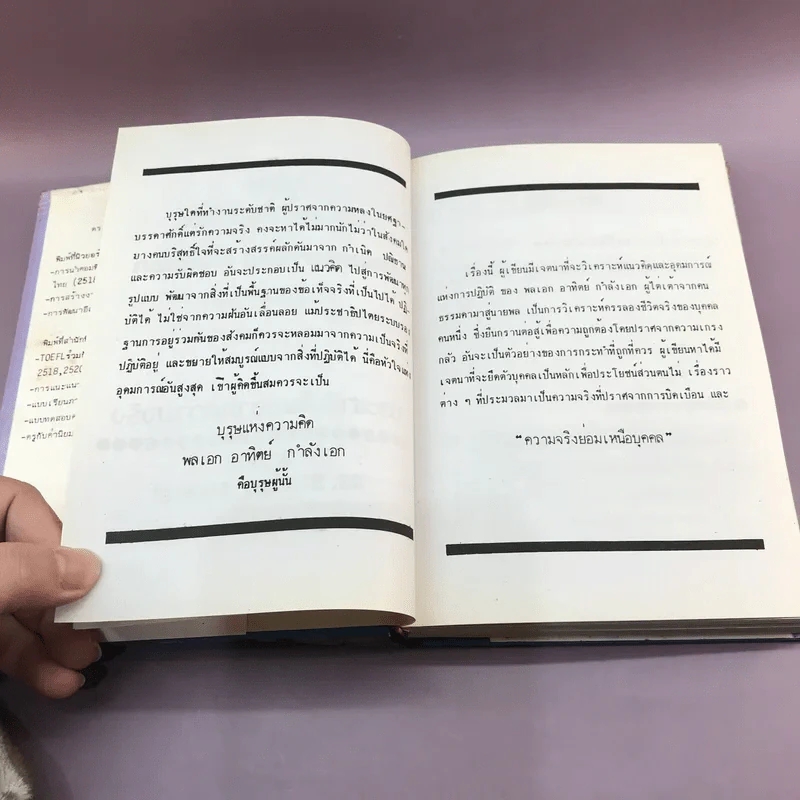 พิมพ์ที่
ไทย (2518
-การสร้าง
-การพัฒนา
-TOEFL
2518,252
-การแนะแนว
-แบบเรียน
-แบบทดสอบ
-ครูกับค่านิยม
บุรุษใดที่ทำงานระดับชาติ ผู้ปราศจากความหลงในยศฐา-
บรรดาศักดิ์แต่รักความจริง คงจะหาได้ไม่มากนักไม่ว่าในสังคมใด
บางคนบริสุทธิ์ใจที่จะสร้างสรรค์ผลักดันมาจาก กำเนิด ปณิธาน
และความรับผิดชอบ อันจะประกอบเป็น แนวคิด ไปสู่การพัฒนาทุก
รูปแบบ พัฒนาจากสิ่งที่เป็นพื้นฐานของข้อเท็จจริงที่เป็นไปได้ ปฏิ-
บัติได้ ไม่ใช่จากความฝันอันเลื่อนลอย แม้ประชาธิปไตยระบบรอง
ฐานการอยู่ร่วมกันของสังคมก็ควรจะหลอมมาจากความเป็นจริงที่
ปฏิบัติอยู่ และขยายให้สมบูรณ์แบบจากสิ่งที่ปฏิบัติได้ นี่คือหัวใจแห่ง
อุดมการณ์อันสูงสุด เข้าผู้คิดขึ้นสมควรจะเป็น
บุรุษแห่งความคิด
พลเอก อาทิตย์ กำลังเอก
คือบุรุษผู้นั้น
เรื่องนี้ ผู้เขียนมีเจตนาที่จะวิเคราะห์แนวคิดและอุดมการณ์
แห่งการปฏิบัติ ของ พลเอก อาทิตย์ กำลังเอก ผู้ไต่เต้าจากคน
ธรรมดามาสู่นายพล เป็นการวิเคราะห์ครรลองชีวิตจริงของบุคคล
คนหนึ่ง ซึ่งยืนกรานต่อสู้เพื่อความถูกต้องโดยปราศจากความเกรง
กลัว อันจะเป็นตัวอย่างของการกระทำที่ถูกที่ควร ผู้เขียนหาได้มี
เจตนาที่จะยึดตัวบุคคลเป็นหลักเพื่อประโยชน์ส่วนตนไม่ เรื่องราว
ต่าง ๆ ที่ประมวลมาเป็นความจริงที่ปราศจากการบิดเบือน และ
"ความจริงย่อมเหนือบุคคล"